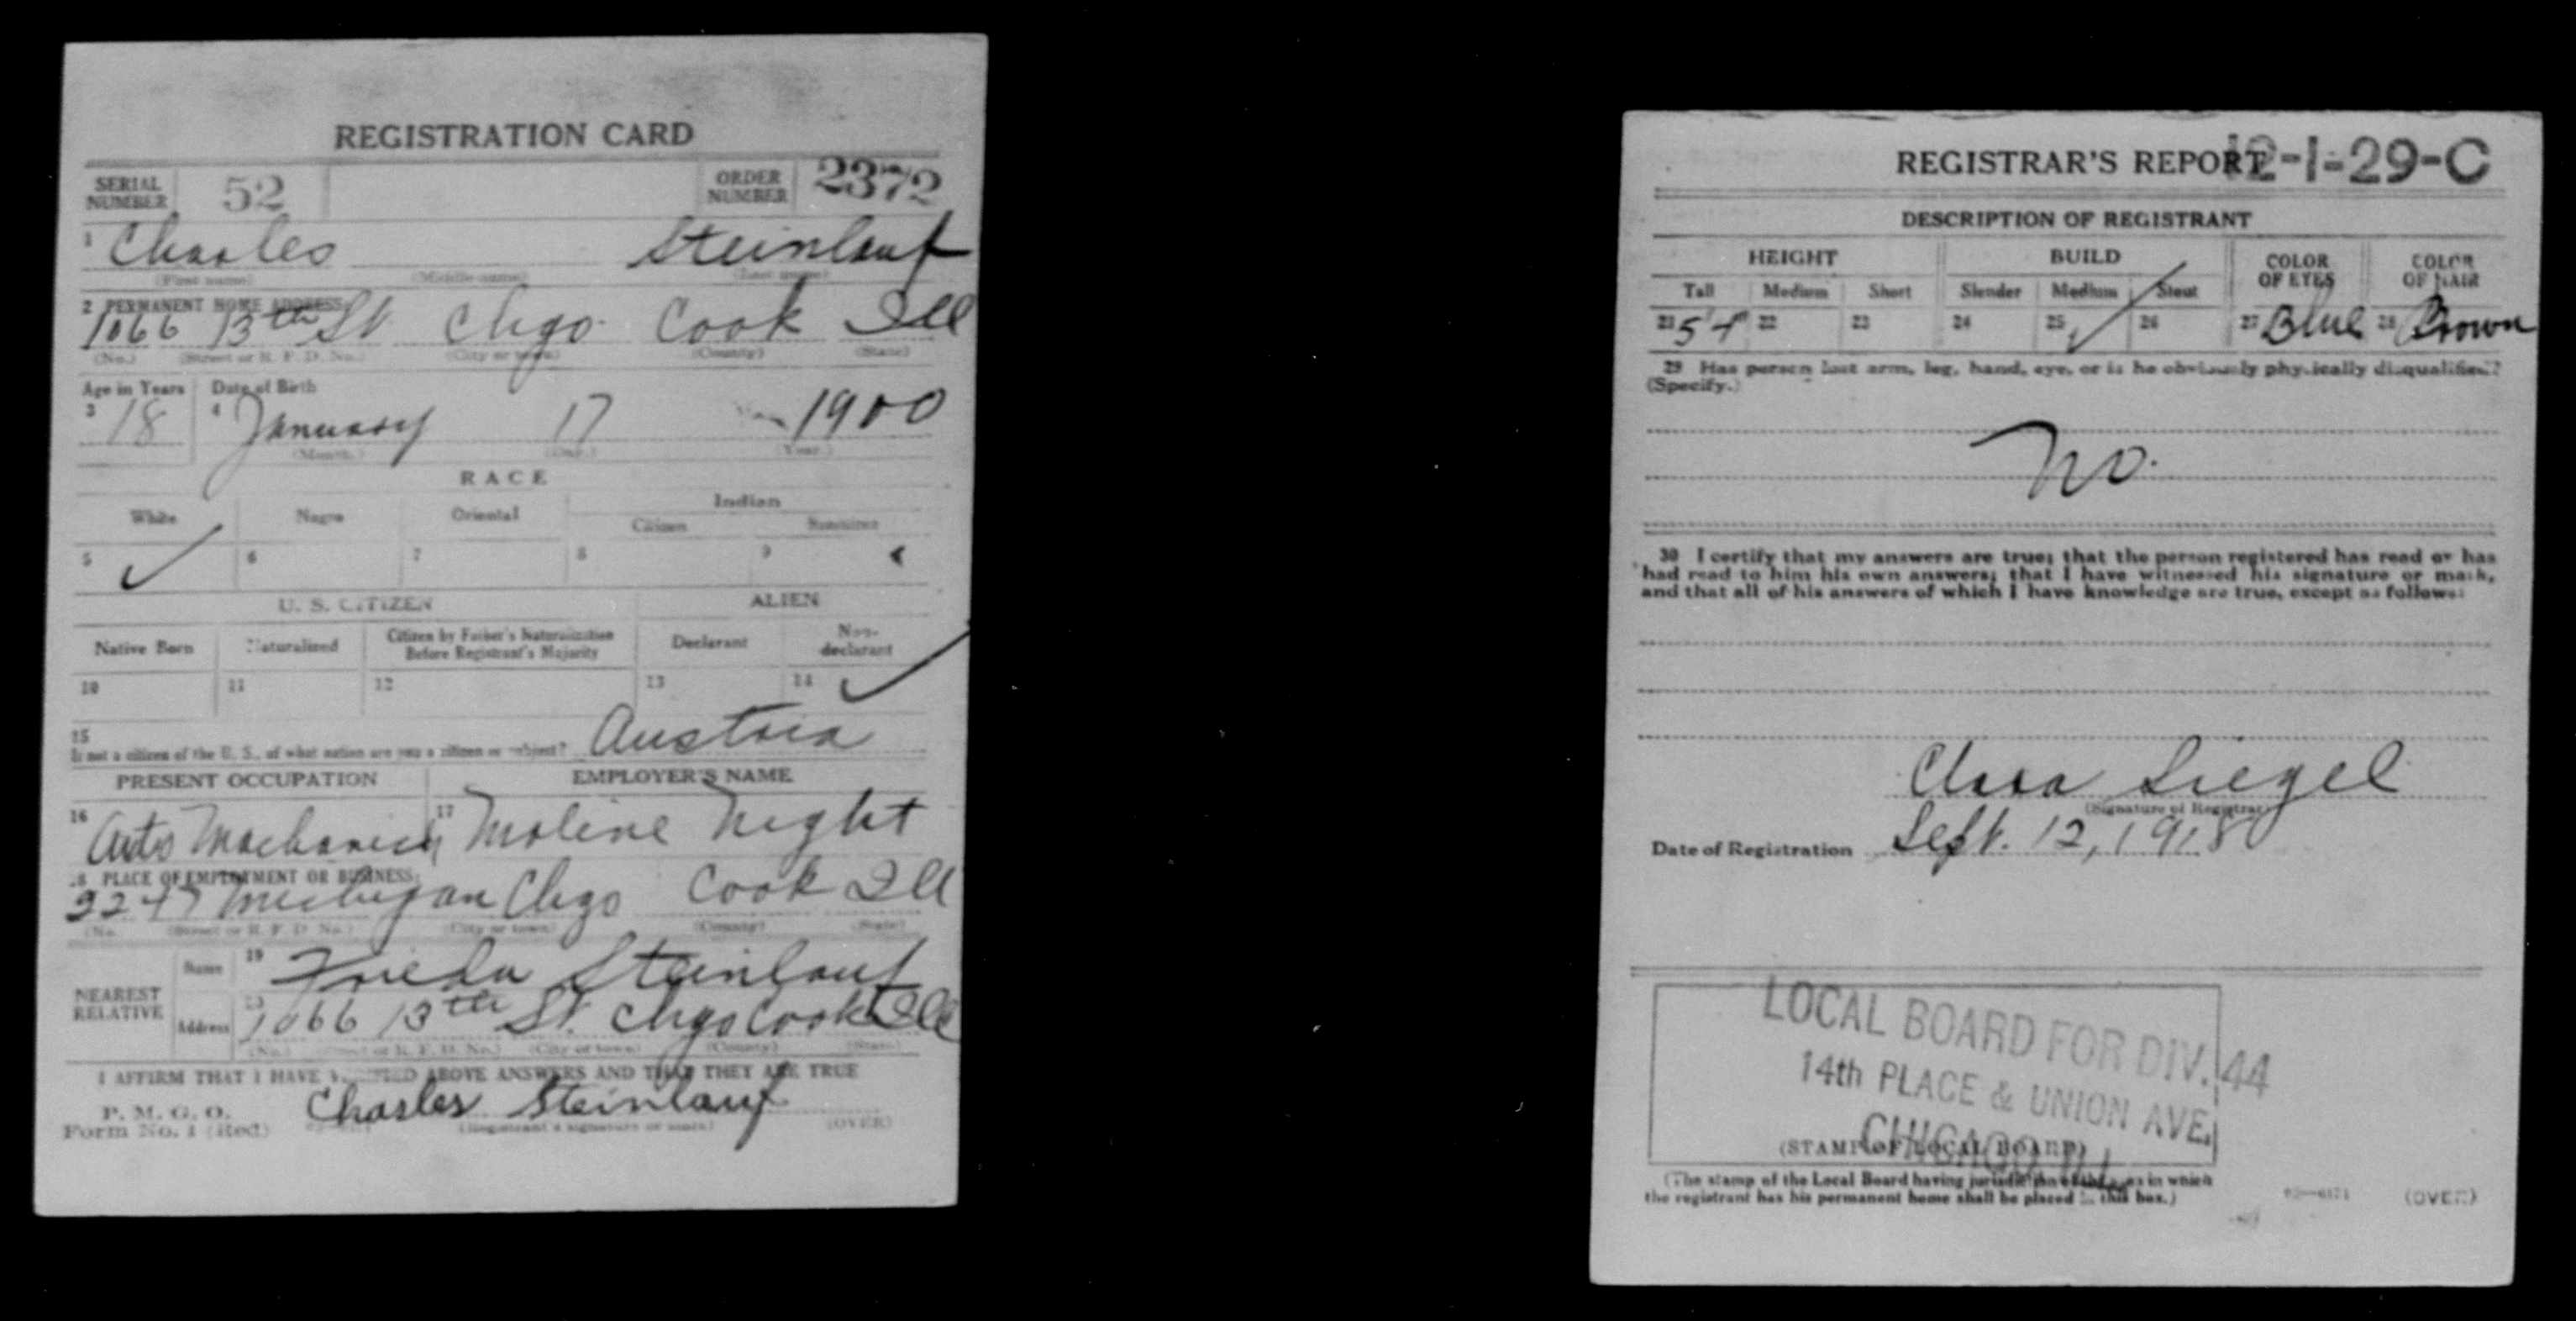 REGISTRATION CARD
SERIAL NUMBER 52 ORDER NUMBER 2372
1 Charles Steinlauf
(First name) (Middle name) (Last name)
2 PERMANENT HOME ADDRESS:
1066 13th St Chgo Cook Ill
(No.) (Street or R. F. D. No.) (City or town) (County) (State)
Age in Years Date of Birth
3 18 4 January 17 1900
(Month.) (Day.) (Year.)
RACE
White Negro Oriental Indian
Citizen
5 ✓ 6 7 8 9
U. S. CITIZEN ALIEN
Native Born Naturalized Citizen by Father's Naturalization Before Registrant's Majority Declarant Non-declarant
10 11 12 13 14 ✓
15
If not a citizen of the U. S., of what nation are you a citizen or subject? Austria
PRESENT OCCUPATION EMPLOYER'S NAME
16 Auto Mechanich 17 Moline Night
18 PLACE OF EMPLOYMENT OR BUSINESS:
Michigan Chgo Cook Ill
(No. (Street or R. F. D. No.) (City or town) (County) (State)
NEAREST RELATIVE Name 19 Frieda Steinlauf
Address 1066 13th St. Chgo Cook Ill
(No.) (Street or R. F. D. No.) (City or town) (County) (State)
I AFFIRM THAT I HAVE VERIFIED ABOVE ANSWERS AND THAT THEY ARE TRUE
P. M. G. O.
Form No. 1 (Red) Charles Steinlauf
(Registrant's signature or mark) (OVER)
REGISTRAR'S REPORT 12-1-29-C
DESCRIPTION OF REGISTRANT
HEIGHT BUILD COLOR OF EYES COLOR OF HAIR
Tall Medium Short Slender Medium Stout
21 22 23 24 25 ✓ 26 27 Blue 28 Brown
29 Has person lost arm, leg, hand, eye, or is he obviously physically disqualified?
(Specify.)
No.
30 I certify that my answers are true; that the person registered has read or has
had read to him his own answers; that I have witnessed his signature or mark,
and that all of his answers of which I have knowledge are true, except as follows:
Clara Siegel
(Signature of Registrar)
Date of Registration Sept. 12, 1918
LOCAL BOARD FOR DIV. 44
14th PLACE & UNION AVE.
CHICAGO, ILL.
(STAMP OF LOCAL BOARD)
(The stamp of the Local Board having jurisdiction of the area in which
the registrant has his permanent home shall be placed in this box.)
(OVER)